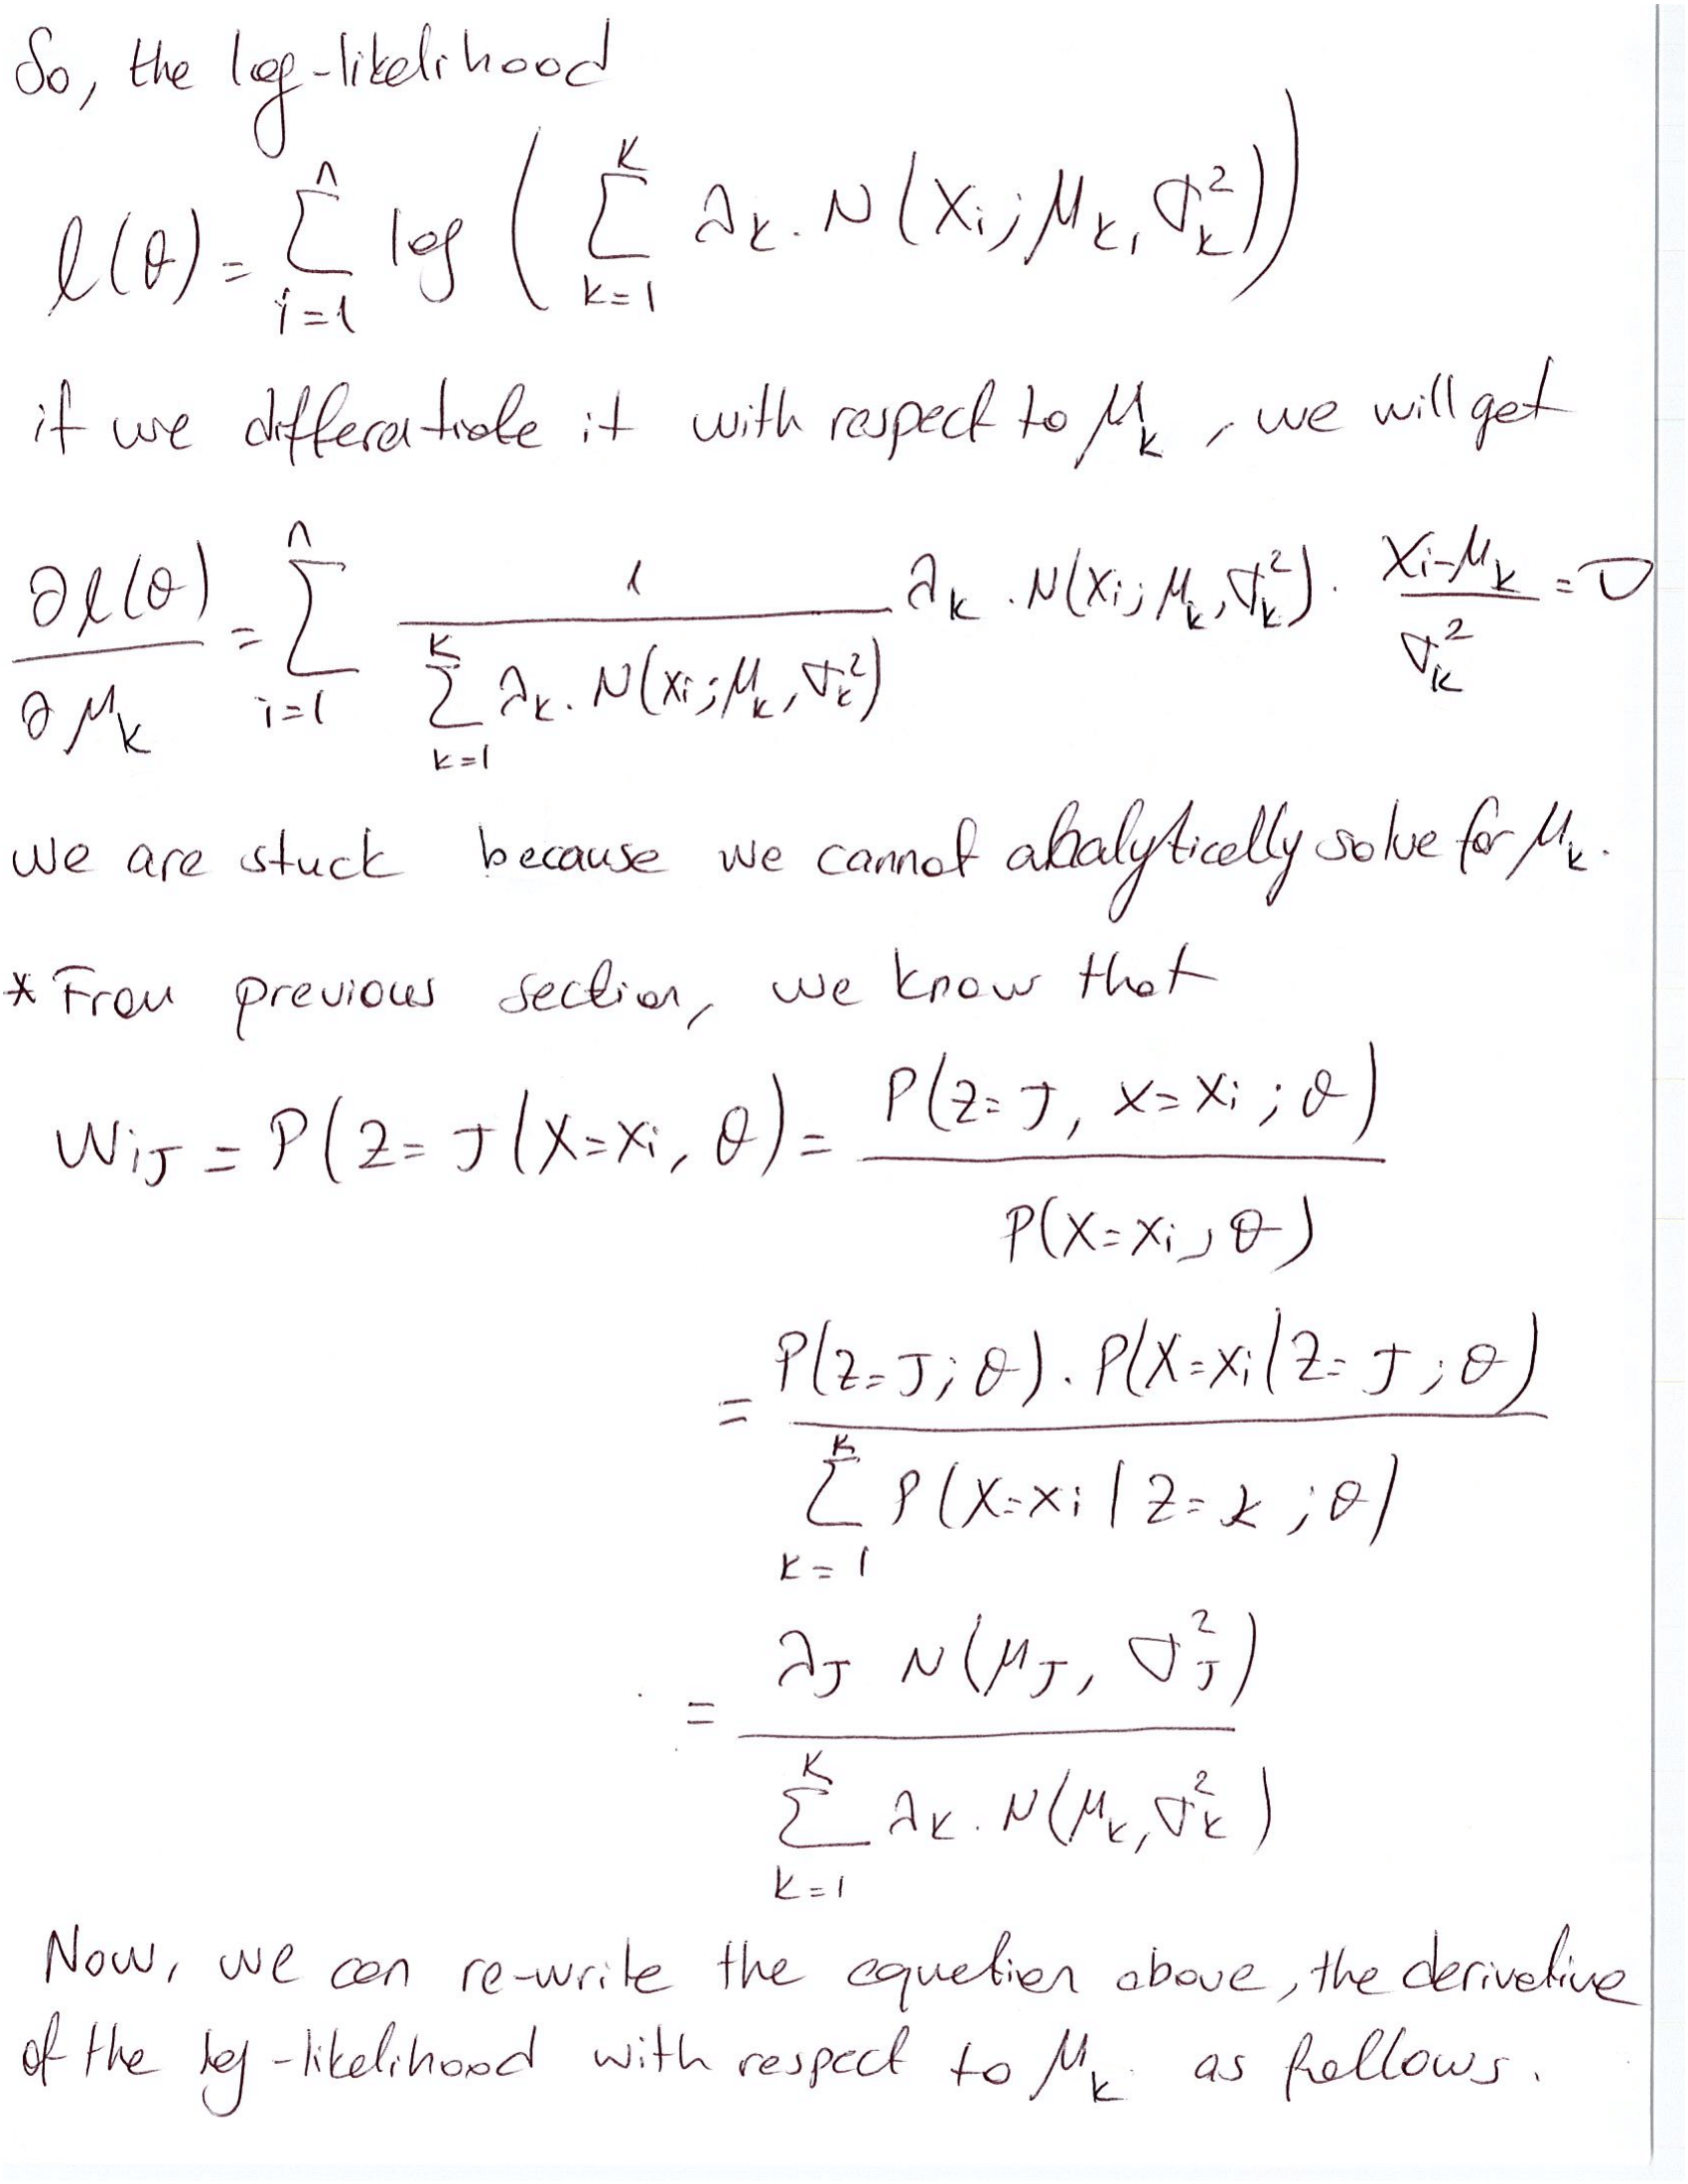 So, the log-likelihood
ℓ(θ) = \sum_{i=1}^{n} log ( \sum_{k=1}^{K} λ_k . N(x_i; μ_k, σ_k^2) )
if we differentiate it with respect to μ_k, we will get
∂ℓ(θ)/∂μ_k = \sum_{i=1}^{n} \frac{1}{\sum_{k=1}^{K} λ_k . N(x_i; μ_k, σ_k^2)} λ_k . N(x_i; μ_k, σ_k^2) . \frac{x_i - μ_k}{σ_k^2} = 0
we are stuck because we cannot analytically solve for μ_k.
* From previous section, we know that
W_{iJ} = P(Z = J | X = x_i, θ) = \frac{P(Z = J, X = x_i ; θ)}{P(X = x_i, θ)}
= \frac{P(Z = J; θ) . P(X = x_i | Z = J ; θ)}{\sum_{k=1}^{K} P(X = x_i | Z = k ; θ)}
= \frac{λ_J N(μ_J, σ_J^2)}{\sum_{k=1}^{K} λ_k . N(μ_k, σ_k^2)}
Now, we can re-write the equation above, the derivative
of the log-likelihood with respect to μ_k as follows.